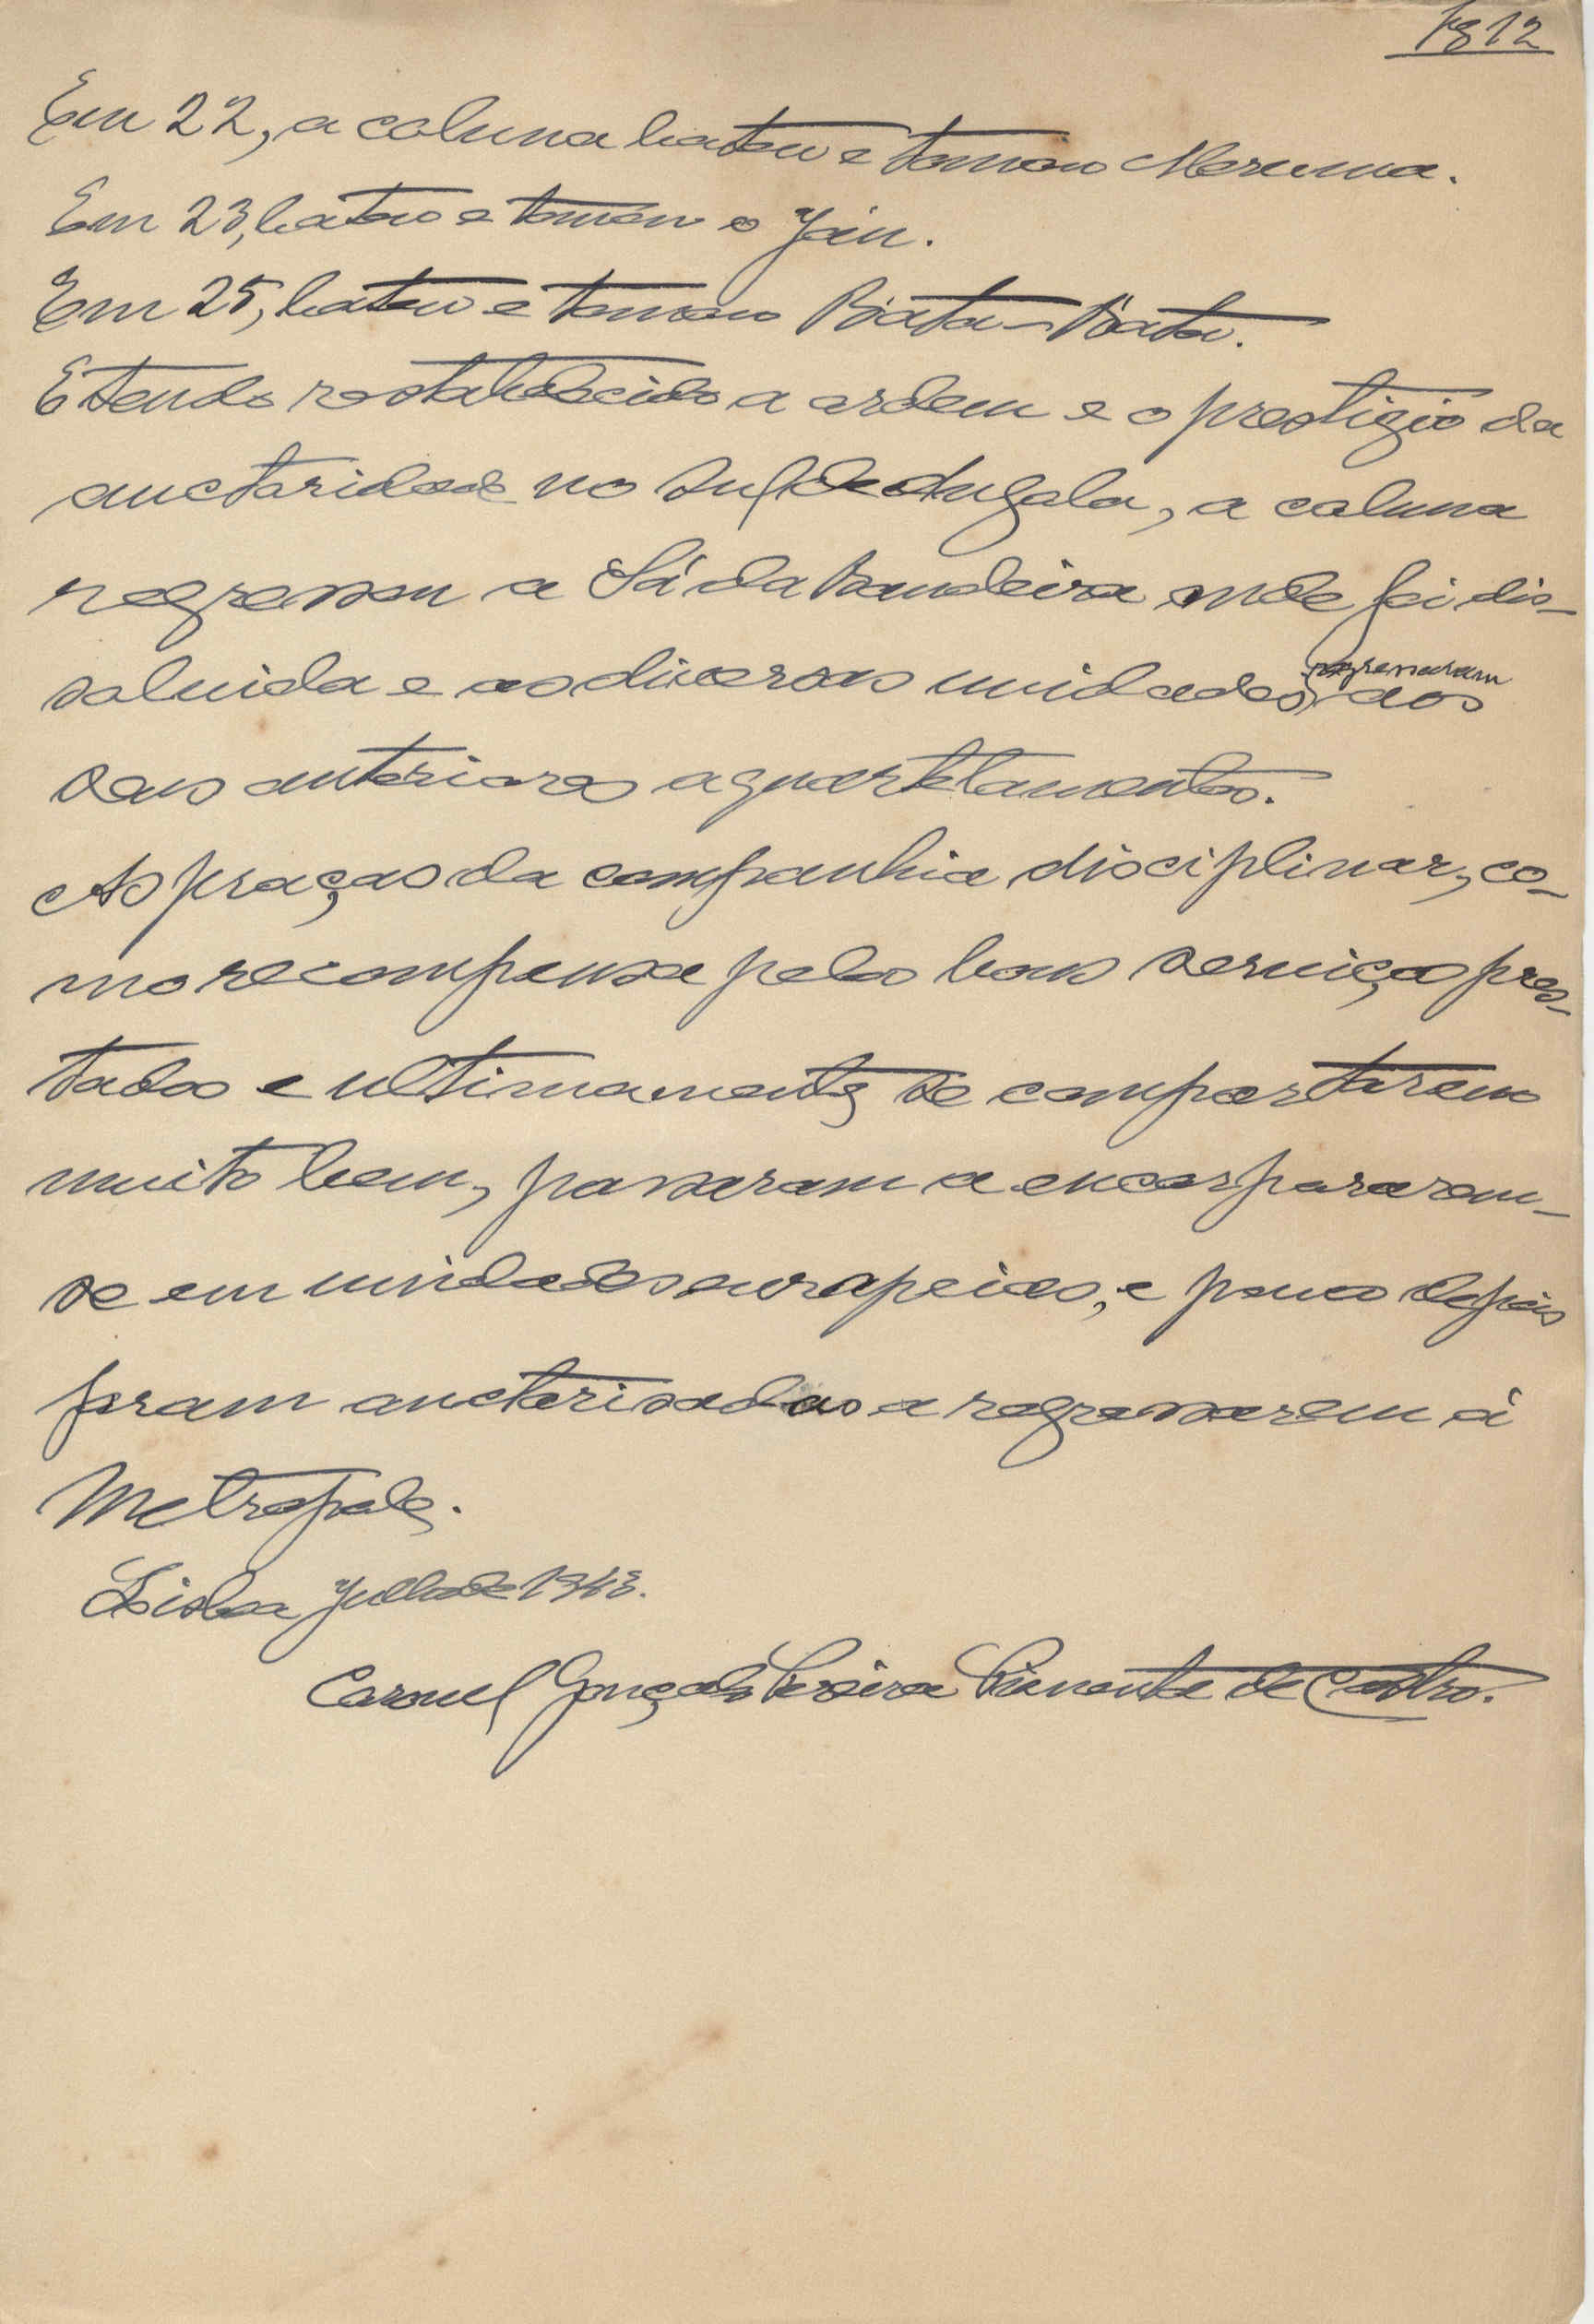 Pg 12
Em 22, a coluna bateu e tomou Meruma.
Em 23, bateu e tomou o
Em 25, bateu e tomou Bata-Bata.
E tendo restabelecido a ordem e o prestigio da
auctoridade no sul de Angola, a coluna
regressou a Sá da Bandeira onde foi dis-
soluida e as diversas unidades regressaram aos
seus anteriores aquartelamentos.
As praças da companhia disciplinar, co-
mo recompensa pelos bons serviços pres-
tados e ultimamente se comportarem
muito bem, passaram a encorporarem-
se em unidades europeias, e pouco depois
foram auctorisadas a regressarem á
Metropole.
Lisboa Julho de 1943.
Coronel Gonçalo Pereira Pimenta de Castro.